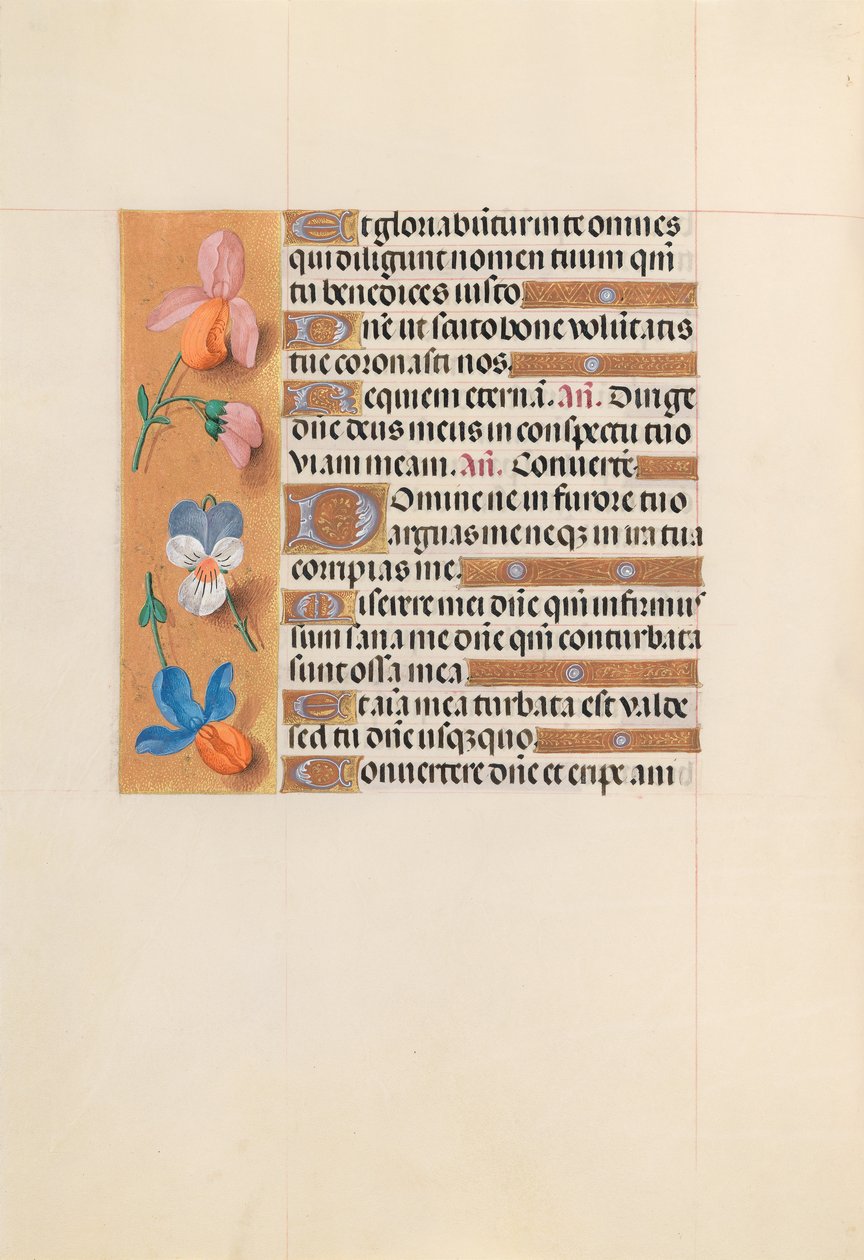 Et gloriabūtur in te omnes
qui diligunt nomen tuum qm̄
tu benedices iusto
Dn̄e ut scuto bone volūtatis
tue coronasti nos.
Requiem etern̄a. An̄. Dirige
dn̄e deus meus in conspectu tuo
viam meam. An̄. Conuerte
Domine ne in furore tuo
arguas me neqꝫ in ira tua
corripias me.
Miserere mei dn̄e qm̄ infirmus
sum sana me dn̄e qm̄ conturbata
sunt ossa mea
Et aīa mea turbata est valde
sed tu dn̄e usqꝫquo.
Conuertere dn̄e et eripe ani